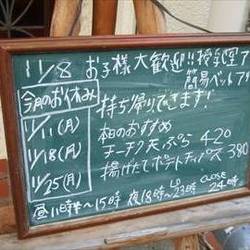 11/8 お子様大歓迎!! 授乳室ア
簡易ベット
今月のお休み
11/11(月)
11/18(月)
11/25(月)
持ち帰りできます!
おすすめ
チーチク天ぷら 420
揚げたてポテトチップス 390
昼11時半〜15時 夜18時〜23時 LO CLOSE 24時